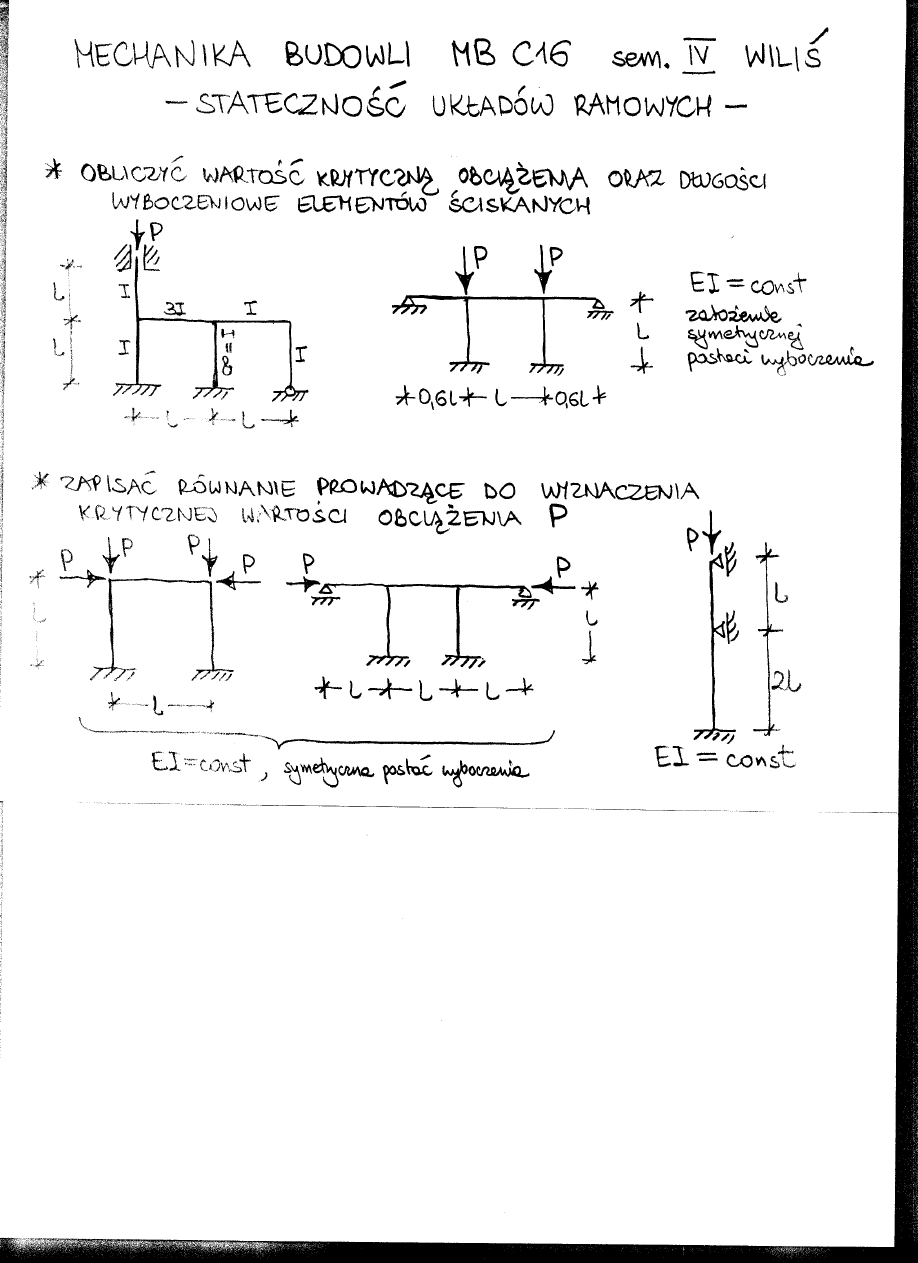 MECHANIKA BUDOWLI MB C16 sem. IV WILIŚ
— STATECZNOŚĆ UKŁADÓW RAMOWYCH —
* OBLICZYĆ WARTOŚĆ KRYTYCZNĄ OBCIĄŻENIA ORAZ DŁUGOŚCI
WYBOCZENIOWE ELEMENTÓW ŚCISKANYCH
P
L
L
I
3I
I
I
I=∞
I
L
L
P
P
L
0,6L
L
0,6L
EI = const
założenie
symetrycznej
postaci wyboczenia
* ZAPISAĆ RÓWNANIE PROWADZĄCE DO WYZNACZENIA
KRYTYCZNEJ WARTOŚCI OBCIĄŻENIA P
P
P
P
P
L
L
P
P
L
L
L
L
EI = const, symetryczna postać wyboczenia
P
L
2L
EI = const